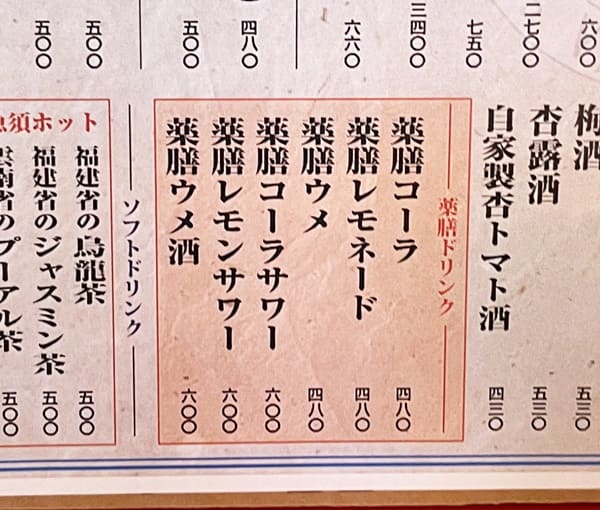 六〇〇
二七〇〇
七五〇
三四〇〇
六六〇
四八〇
五〇〇
五〇〇
五〇〇
梅酒 五三〇
杏露酒 五三〇
自家製杏トマト酒 四三〇
薬膳ドリンク
薬膳コーラ 四八〇
薬膳レモネード 四八〇
薬膳ウメ 四八〇
薬膳コーラサワー 六〇〇
薬膳レモンサワー 六〇〇
薬膳ウメ酒 六〇〇
ソフトドリンク
急須ホット
福建省の烏龍茶 五〇〇
福建省のジャスミン茶 五〇〇
雲南省のプーアル茶 五〇〇